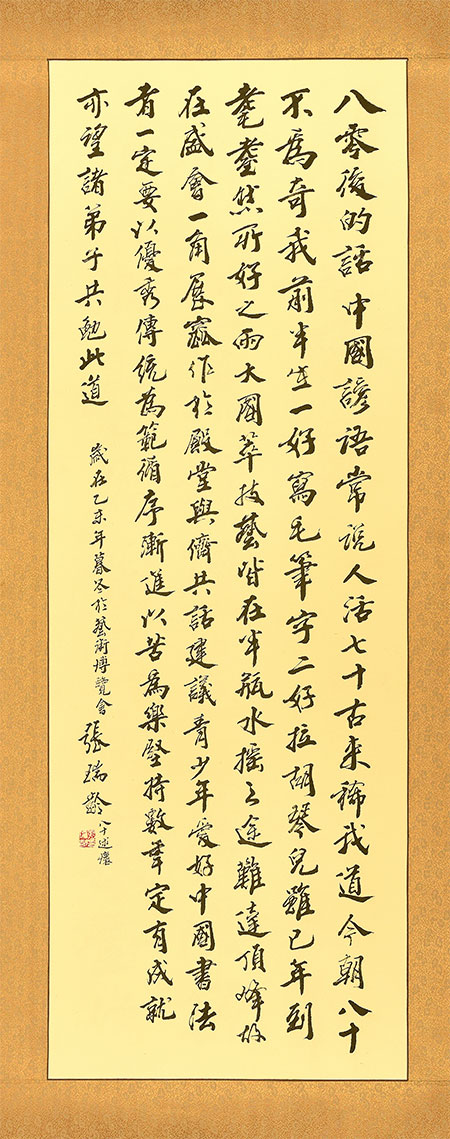 八零後的話中國諺語常說人活七十古來稀我道今朝八十
不為奇我前半生一好寫毛筆字二好拉胡琴兒雖已年到
耄耋然所好之兩大國萃技藝皆在半瓶水搖之途難達頂峰故
在盛會一角展窳作於殿堂與儕共話建議青少年愛好中國書法
者一定要以優秀傳統為範循序漸進以苦為樂堅持數年定有成就
亦望諸弟子共勉此道
歲在乙未年暮冬於藝術博覽會 張瑞齡 八十述懷